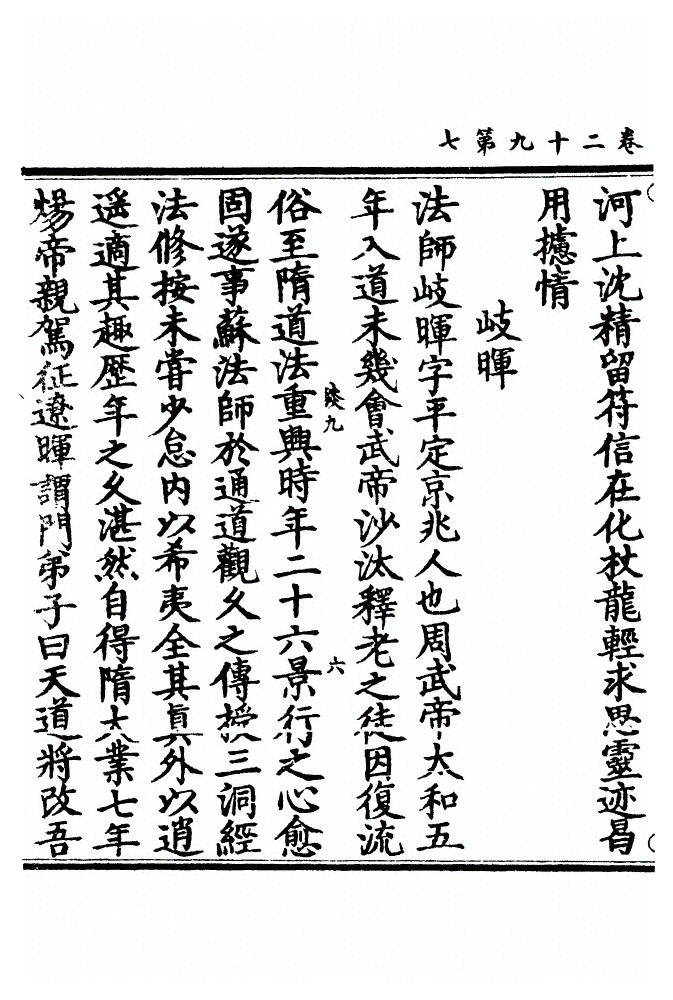 卷二十九第七
河上沈精留符信在化杖龍輕求思靈迹曷
用攄情
岐暉
法師岐暉字平定京兆人也周武帝太和五
年入道未幾會武帝沙汰釋老之徒因復流
淡九
六
俗至隋道法重興時年二十六景行之心愈
固遂事蘇法師於通道觀久之傳授三洞經
法修按未嘗少怠内以希夷全其真外以逍
遥適其趣歷年之久湛然自得隋大業七年
煬帝親駕征遼暉謂門弟子曰天道將改吾